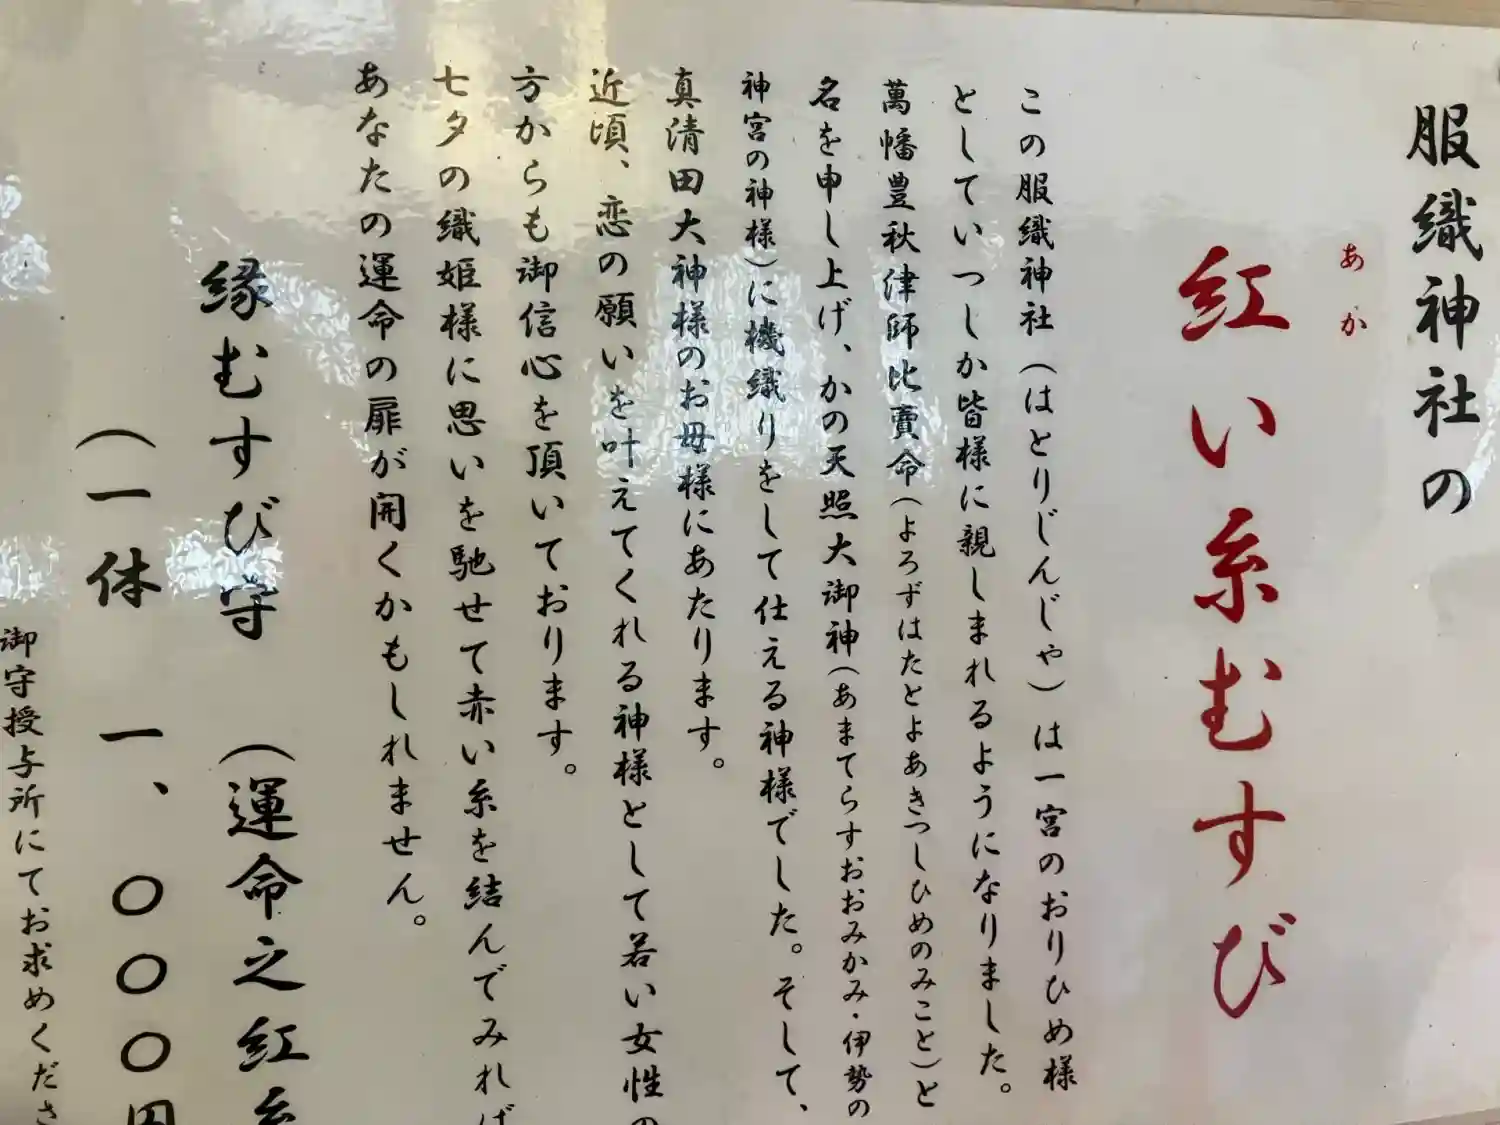 服織神社の
あか
紅い糸むすび
この服織神社(はとりじんじゃ)は一宮のおりひめ様
としていつしか皆様に親しまれるようになりました。
萬幡豊秋津師比賣命(よろずはたとよあきつしひめのみこと)と
名を申し上げ、かの天照大御神(あまてらすおおみかみ・伊勢の
神宮の神様)に機織りをして仕える神様でした。そして、
真清田大神様のお母様にあたります。
近頃、恋の願いを叶えてくれる神様として若い女性の
方からも御信心を頂いております。
七夕の織姫様に思いを馳せて赤い糸を結んでみれば
あなたの運命の扉が開くかもしれません。
縁むすび守 (運命之紅糸
(一体 一、〇〇〇円
御守授与所にてお求めくださ